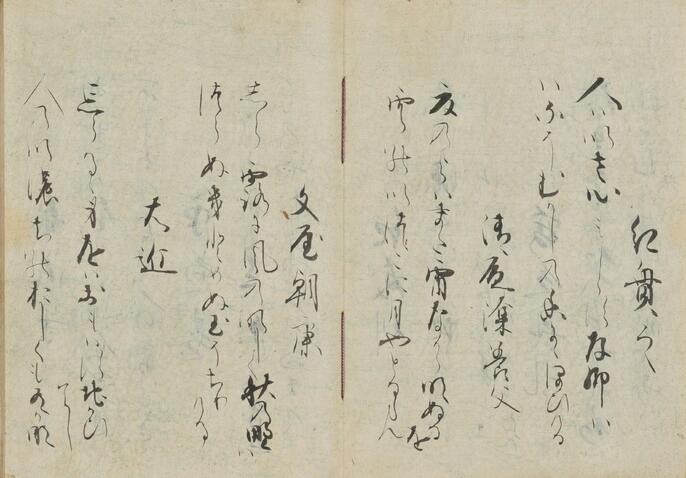 紀貫之
人はいさ心もしらす故郷は
はなそむかしの香ににほひける
清原深養父
夏の夜はまた宵なから明ぬるを
雲のいつこに月やとるらん
文屋朝康
しら露に風の吹しく秋の野は
つらぬきとめぬ玉そちりける
右近
忘らるる身をはおもはすちかひてし
人の命のおしくも有かな